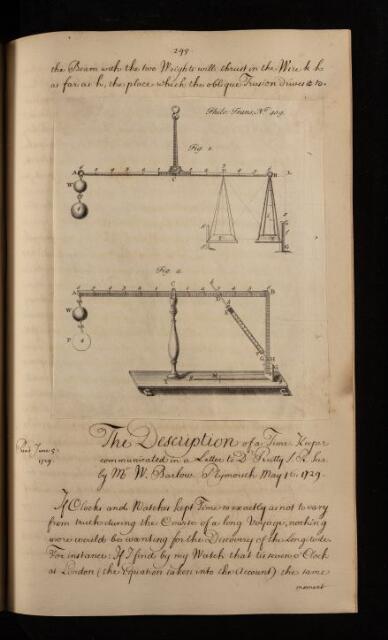 299
the Beam with the two Weights will thrust in the Wire k h
as far as h, the place which the oblique Trusion drives it to.
Philo: Trans. No. 409.
Fig. 1.
A
B
L
C
W
Fig. 2.
A
C
B
W
P
Read June 5.
1729.
The Description of a Time Keeper
communicated in a Letter to Dr
by Mr W. Barlow. Plymouth May 16. 1729.
If Clocks and Watches kept Time so exactly as not to vary
from truth during the Course of a long Voyage, nothing
more would be wanting for the Discovery of the Longitude.
For instance: If I find by my Watch that tis seven o'Clock
at London (the Equation taken into the Account) the same
moment